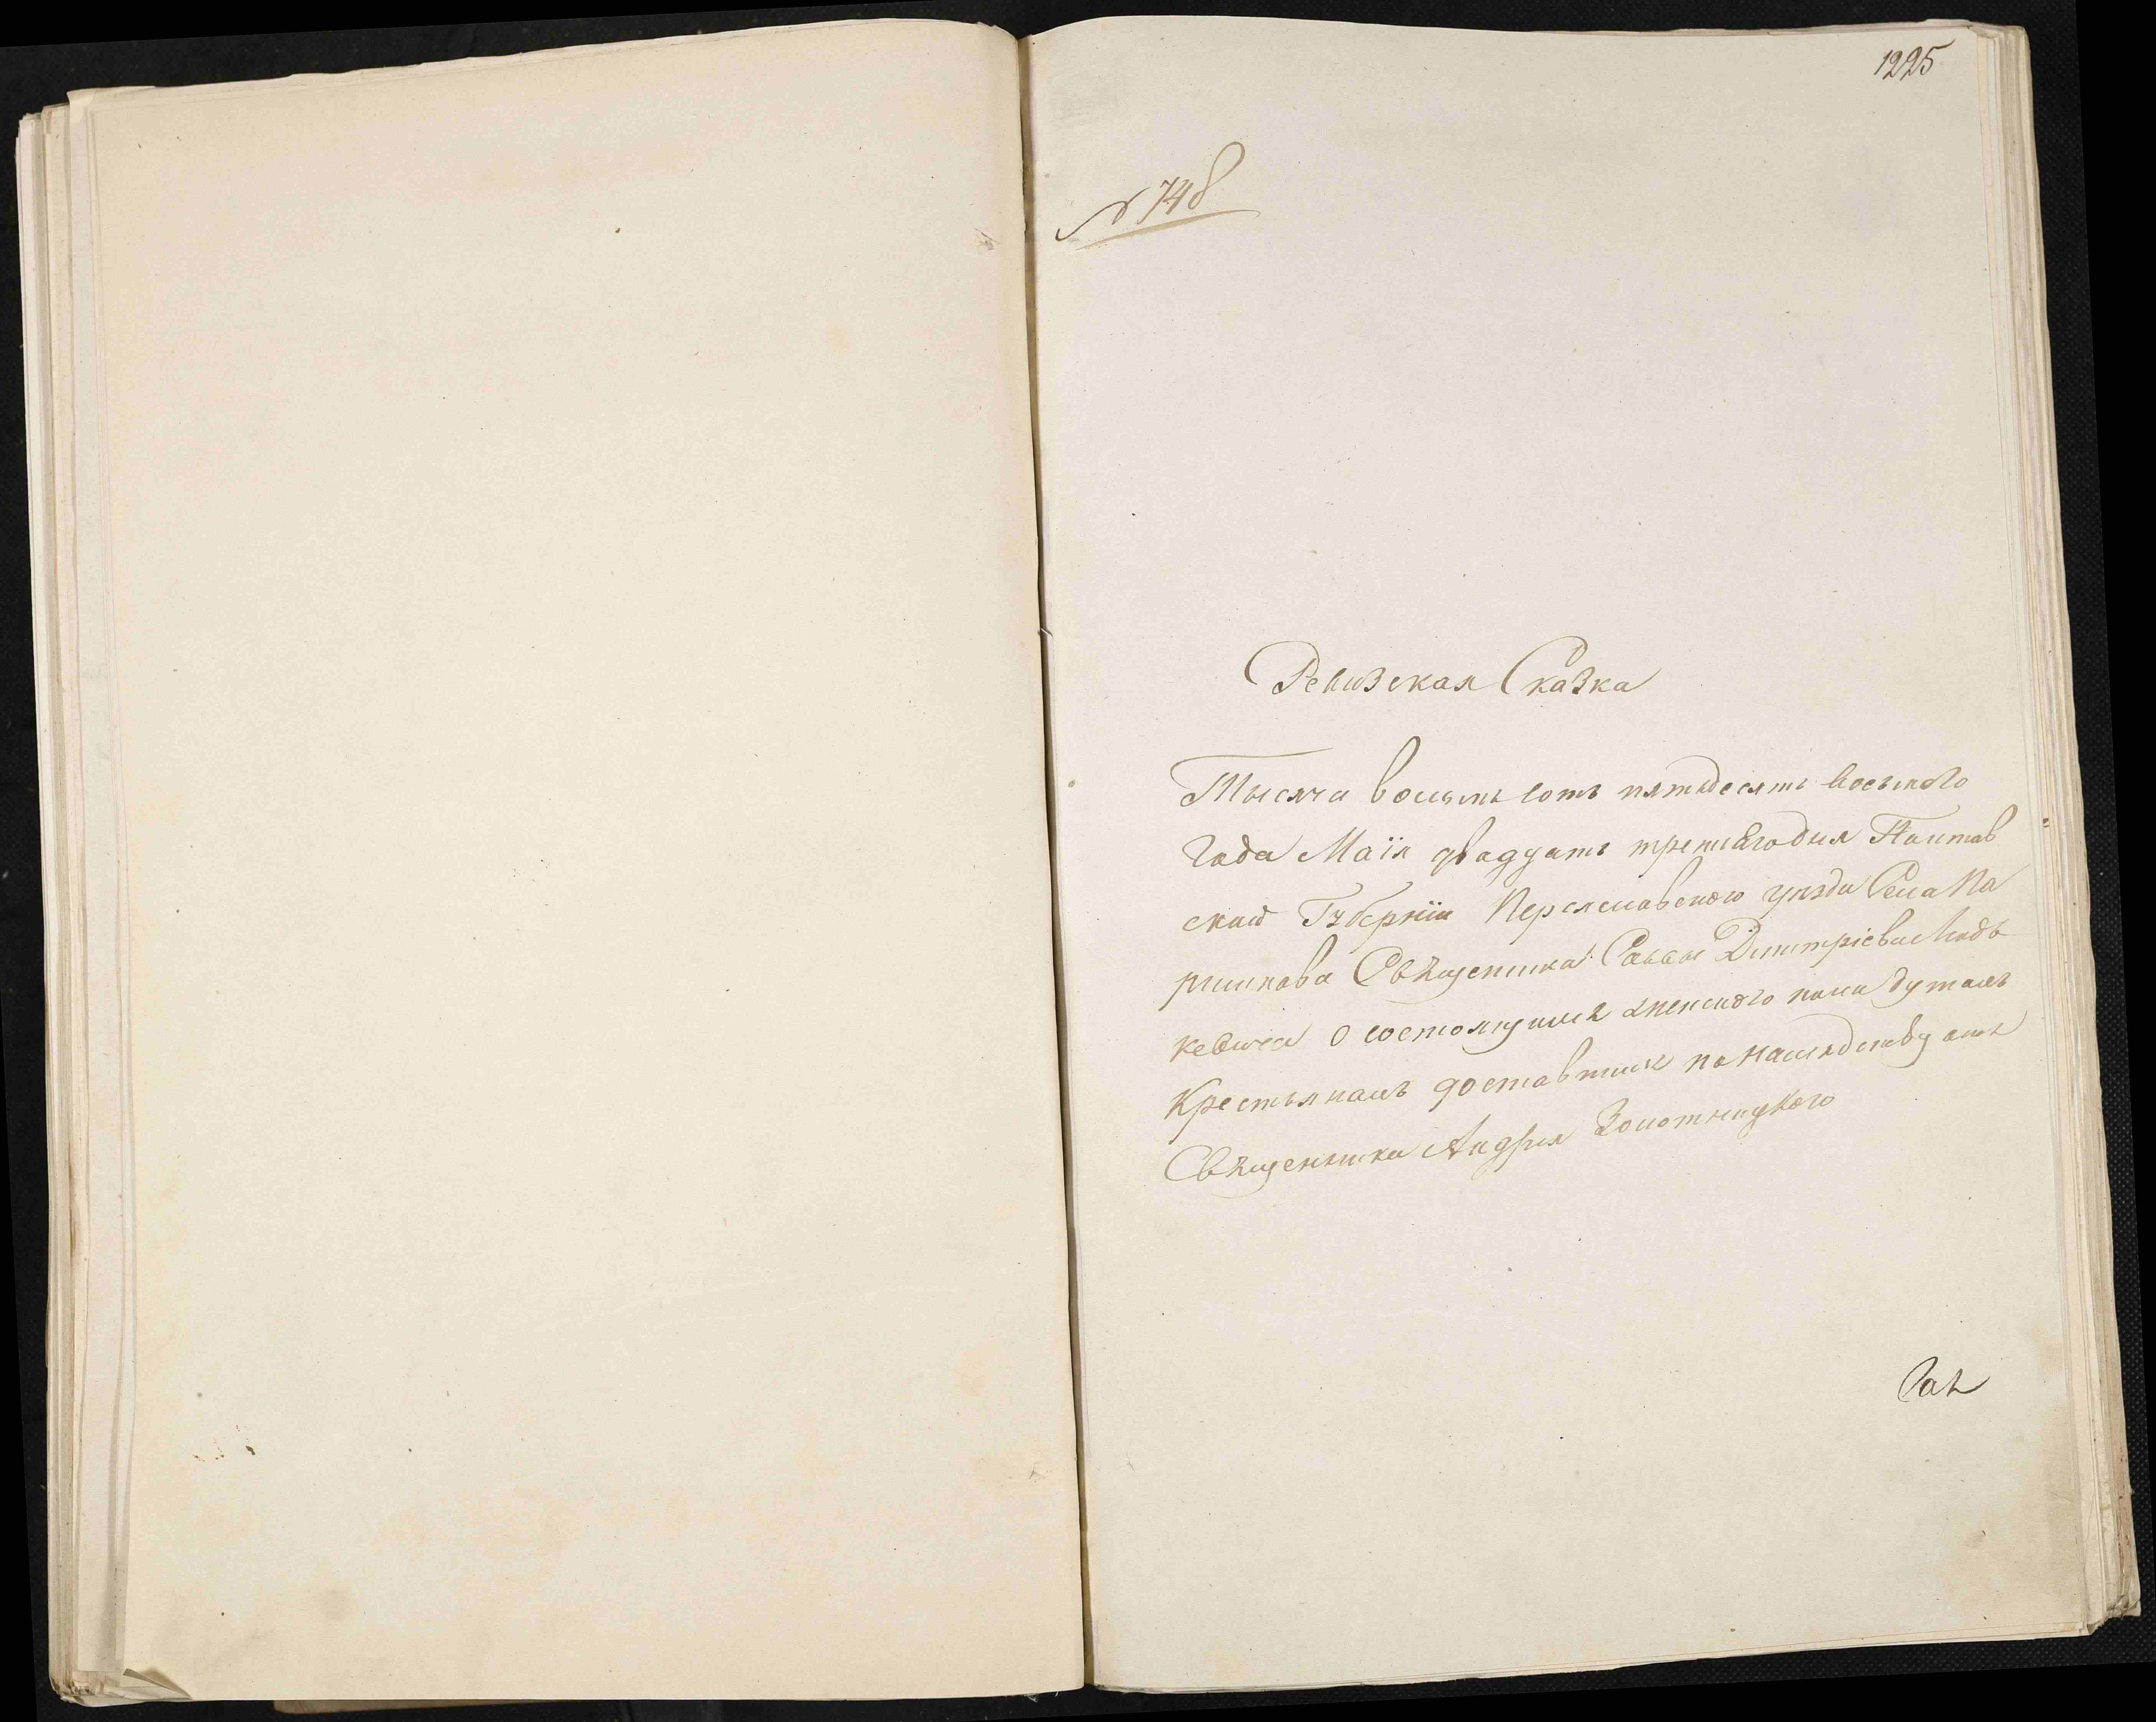 1225
№ 748
Ревизская Сказка
Тысяча восемь сотъ пятьдесятъ восьмого
Года Маія двадцать третьягодня Полтав
ской Губерніи Переяславскаго уезда Села Па
ришкова Свѣщеника Саввы Димитріева
кевича о состоящихъ женскаго пола
Крестьянахъ доставшихъ по наследству отъ
Свѣщенника Андрея Золотницкого